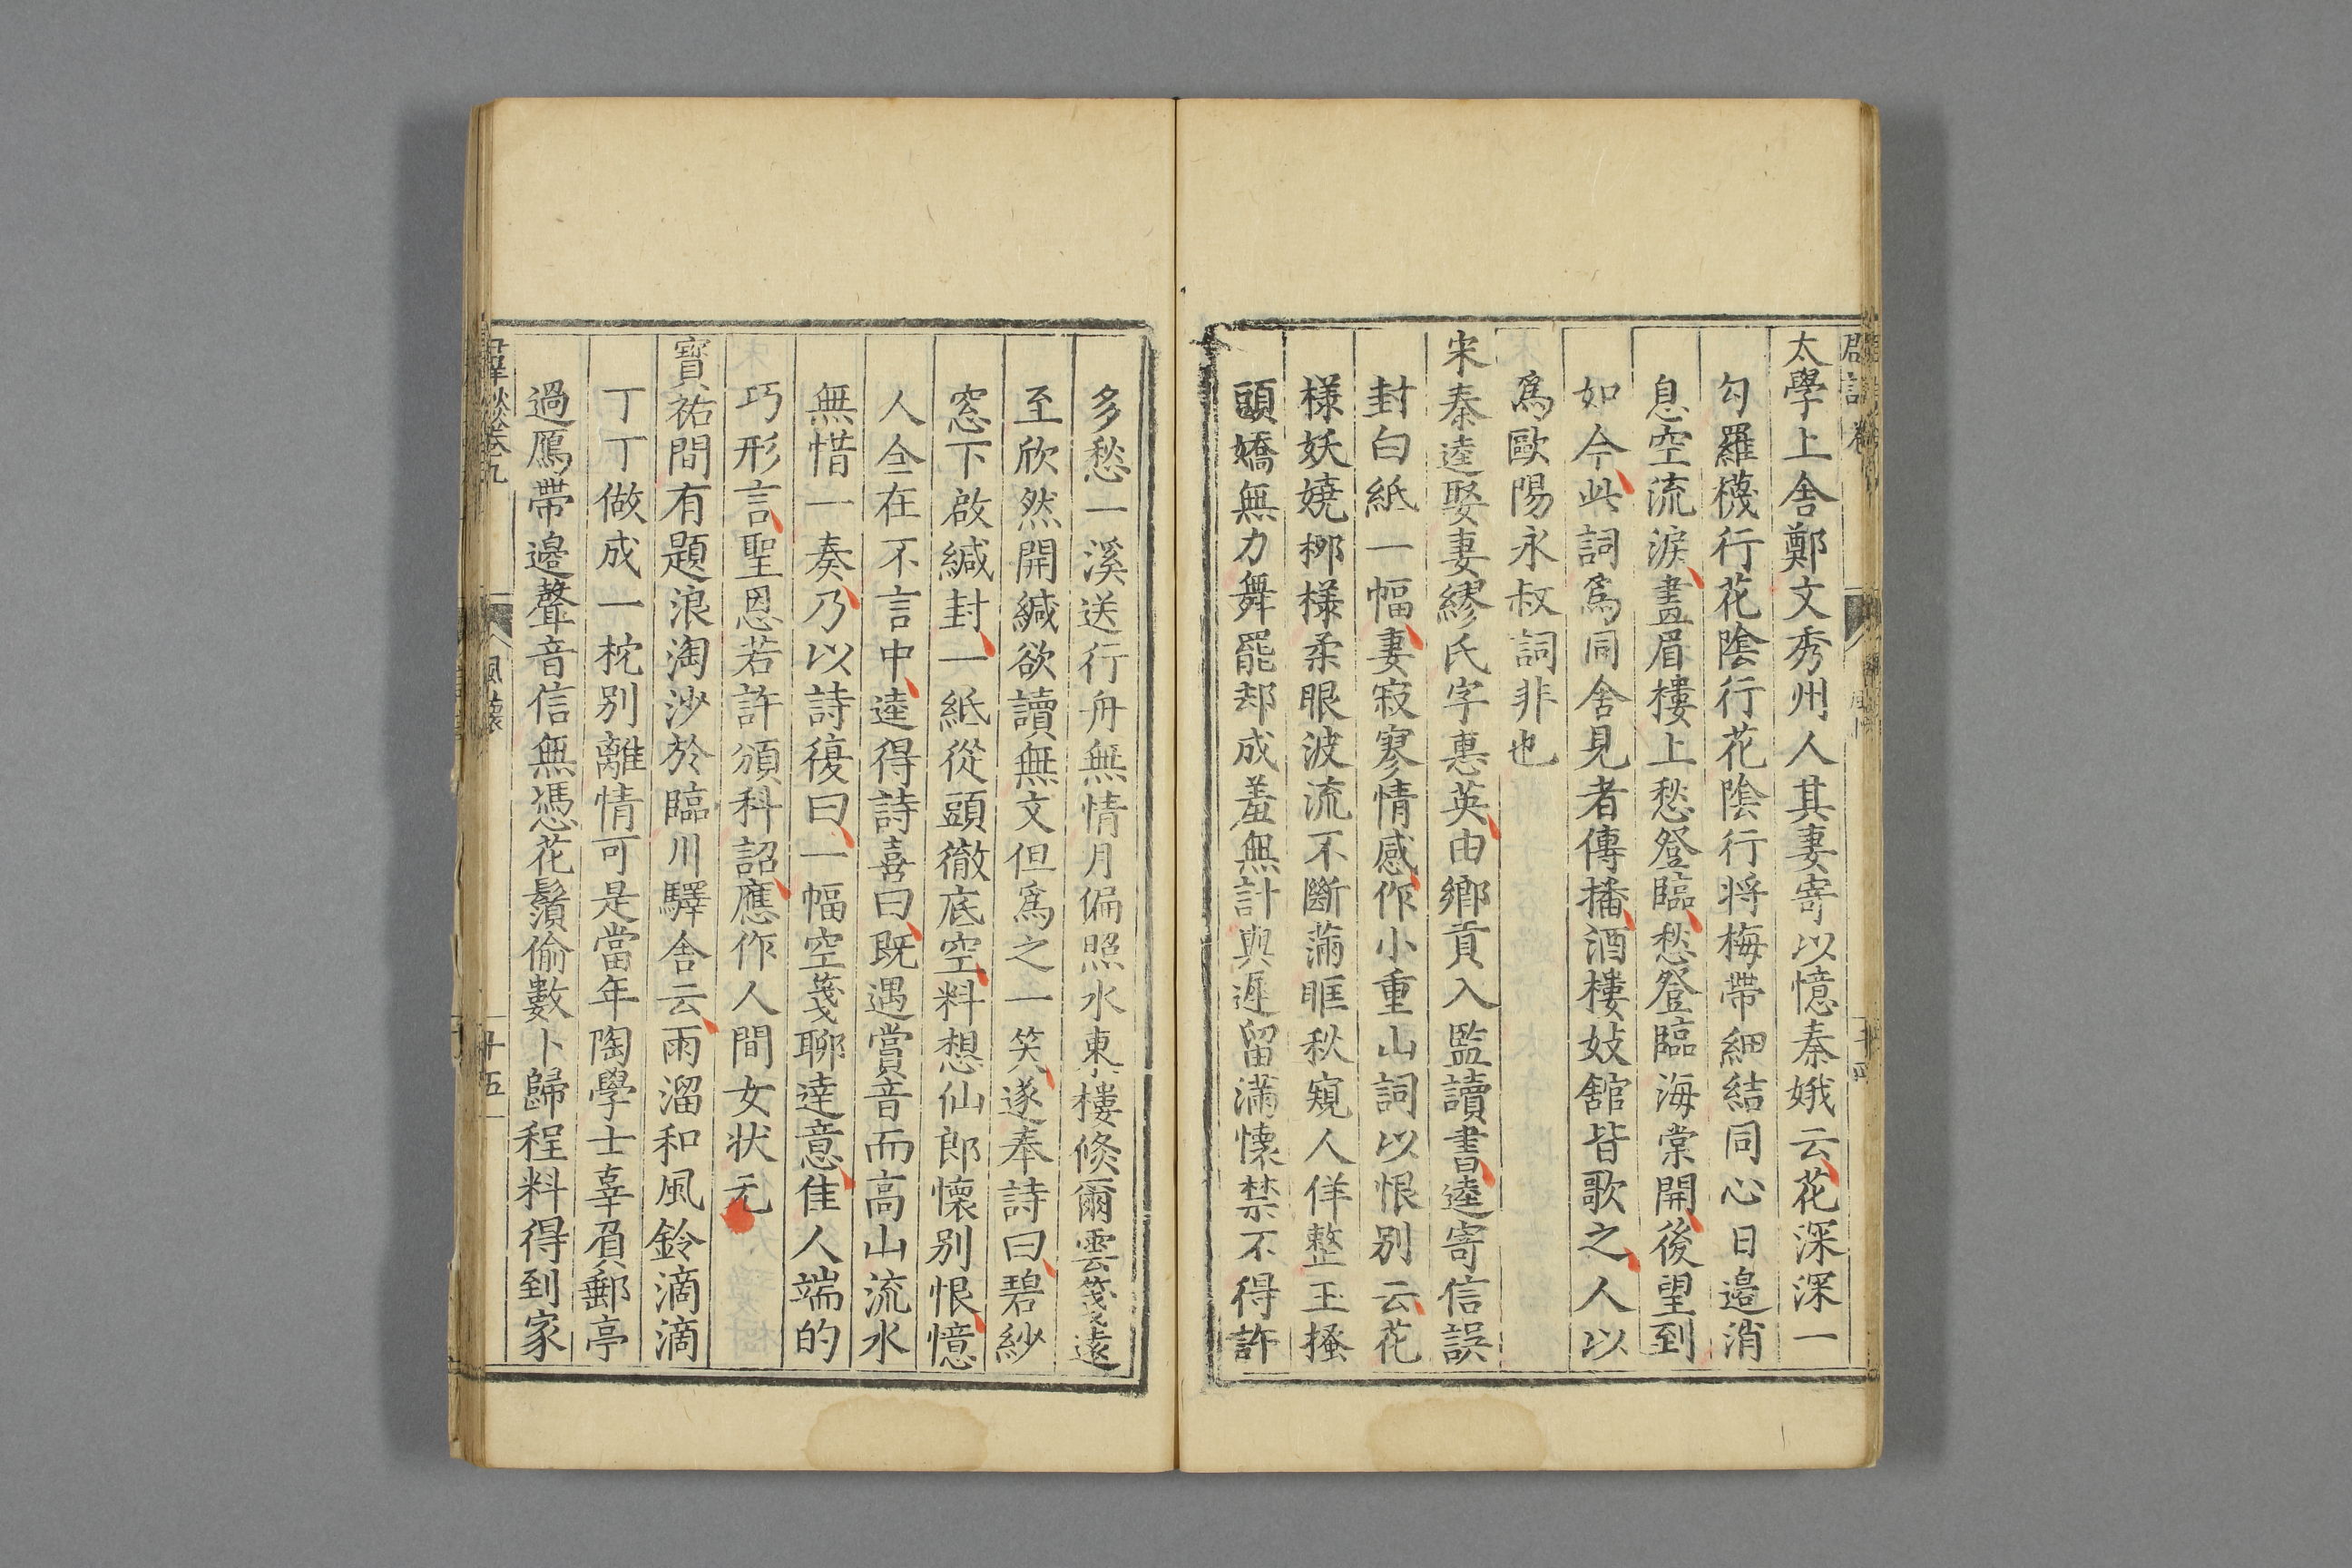 太學上舍鄭文秀州人其妻寄以憶秦娥云花深深一
勾羅襪行花陰行花陰行将梅帶細結同心日邉消
息空流淚畫眉樓上愁登臨愁登臨海棠開後望到
如今此詞爲同舍見者傳播酒樓妓舘皆歌之人以
爲歐陽永叔詞非也
宋秦逵娶妻繆氏字惠英由鄉貢入監讀書逵寄信誤
封白紙一幅妻寂寥情感作小重山詞以恨別云花
様妖嬈栁様柔眼波流不斷滿眶秋窺人佯整玉搔
頭嬌無力舞罷却成羞無計與遲留滿懐禁不得許
多愁一溪送行舟無情月偏照水東樓倐爾雲箋遠
至欣然開緘欲讀無文但爲之一笑遂奉詩曰碧紗
窓下啟緘封一紙從頭徹底空料想仙郎懐別恨憶
人全在不言中逵得詩喜曰既遇賞音而高山流水
無惜一奏乃以詩復曰一幅空箋聊達意佳人端的
巧形言聖恩若許頒科詔應作人間女状元
寶祐間有題浪淘沙於臨川驛舍云雨溜和風鈴滴滴
丁丁做成一枕别離情可是當年陶學士辜負郵亭
過鴈帶邉聲音信無憑花鬚偷數卜歸程料得到家
卷九
風懐
十五